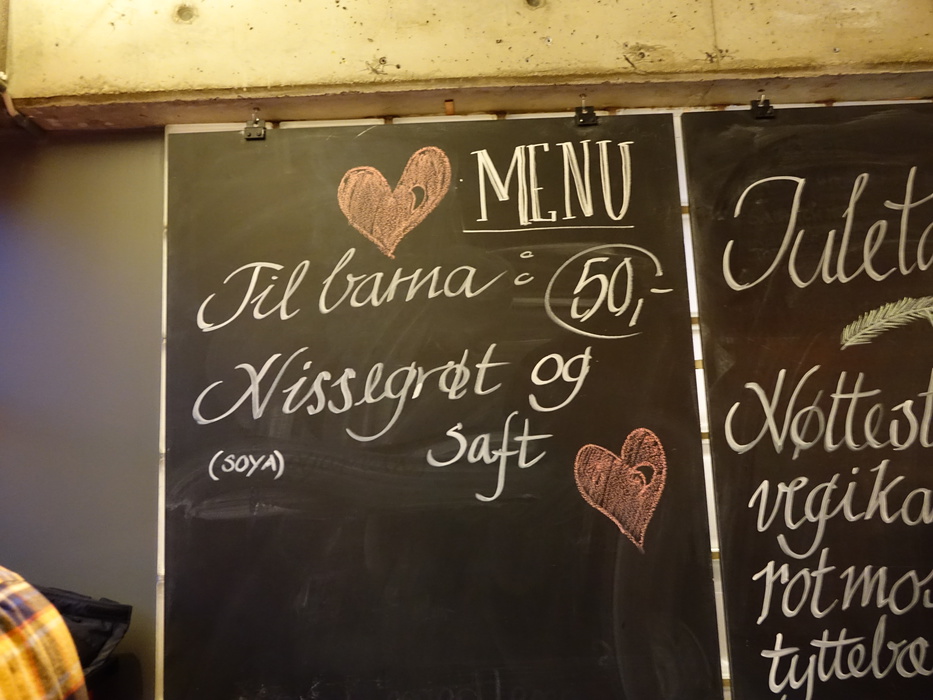 MENU
Til barna : 50,-
Nissegrøt og
saft
(SOYA)
Juleta
Nøttest
vegika
rotmos
tyttebæ